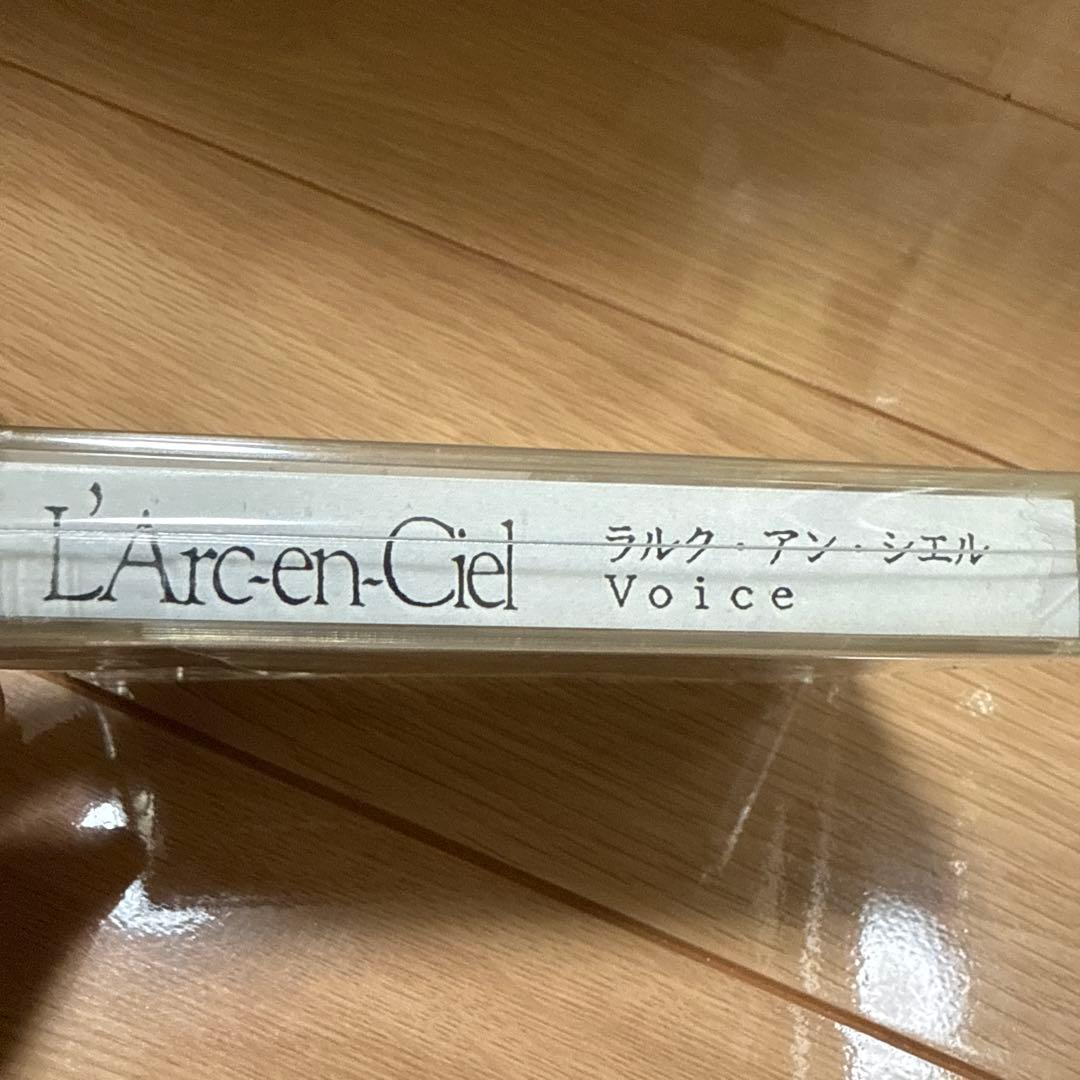 L'Arc-en-Ciel
ラルク・アン・シエル
Voice